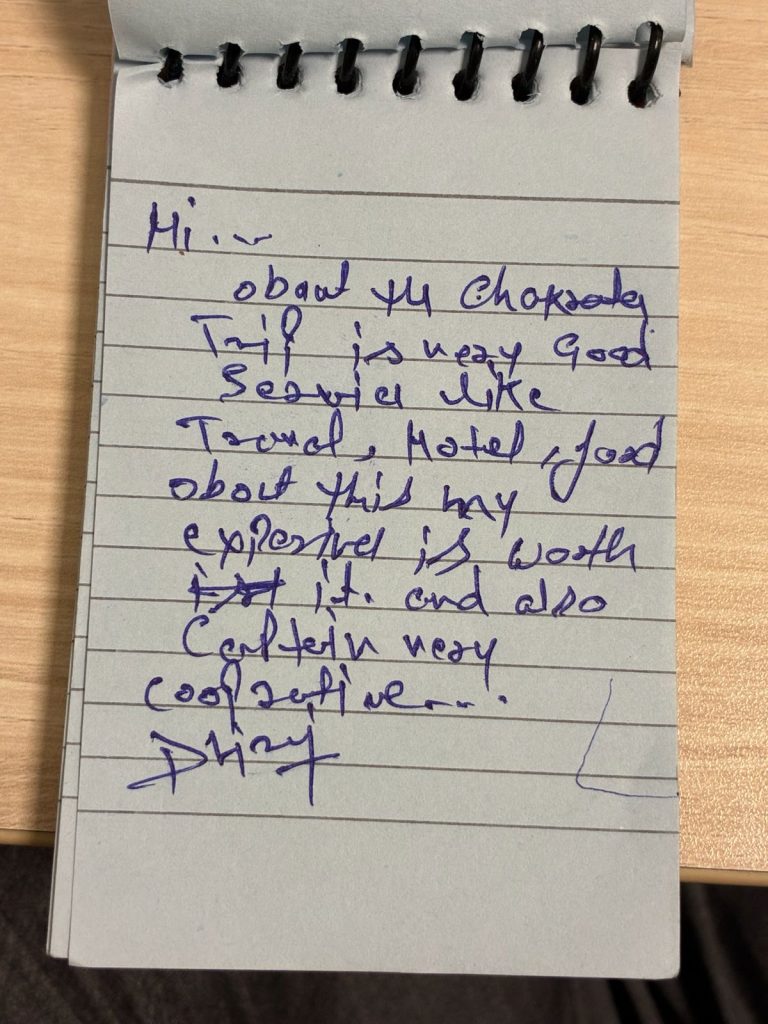 Hi...
about the Chakrata
Trip is very Good
Service like
Travel, Hotel, food
about this my
experience is worth
it. and also
Captain very
cooprative....
Dhiraj